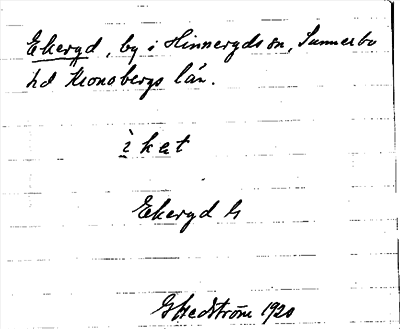 Ekeryd, by i Hinneryds sn, Sunnerbo
hd Kronobergs län.
ìket
Ekeryd h
G Hedström 1920